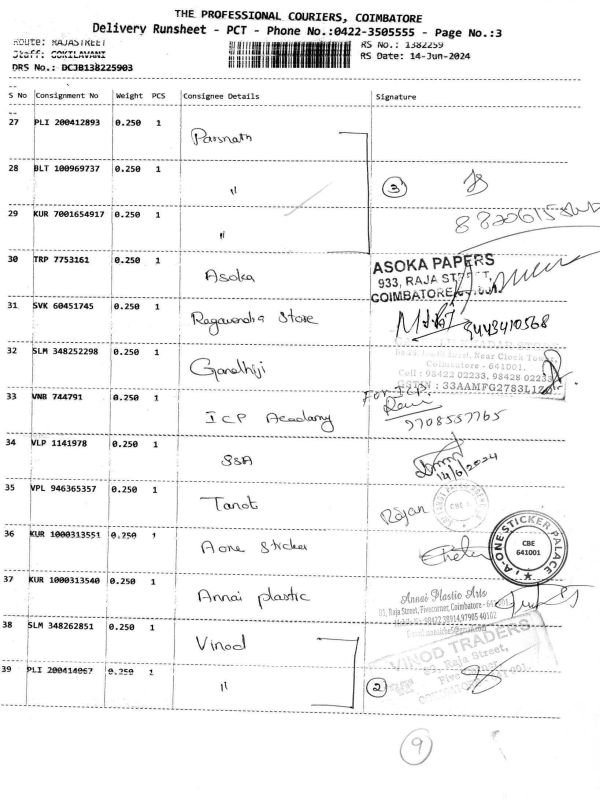 THE PROFESSIONAL COURIERS, COIMBATORE
Delivery Runsheet - PCT - Phone No.:0422-3505555 - Page No.:3
Route: RAJASTREET
RS No.: 1382259
Staff: GOKILAVANI
RS Date: 14-Jun-2024
DRS No.: DCJB138225903
S No Consignment No Weight PCS Consignee Details Signature
27 PLI 200412893 0.250 1 Parsnath
28 BLT 100969737 0.250 1 " 3
29 KUR 7001654917 0.250 1 "
30 TRP 7753161 0.250 1 Asoka
ASOKA PAPERS
933, RAJA
COIMBATORE
31 SVK 60451745 0.250 1 Ragavendra Store 9443410568
32 SLM 348252298 0.250 1 Gandhiji
Near Clock Tower,
Coimbatore - 641001.
Cell : 98422 02233, 98428 02233
GSTIN : 33AAMFG2783L1Z
33 VNB 744791 0.250 1 ICP Academy
For ICP
9708557765
34 VLP 1141978 0.250 1 SSA
14/6/2024
35 VPL 946365357 0.250 1 Tanot Rajan
CBE
36 KUR 1000313551 0.250 1 Aone sticker
A-ONE STICKER PALACE
CBE
641001
37 KUR 1000313540 0.250 1 Annai plastic
Annai Plastic Arts
Raja Street, Fivecorner, Coimbatore -
98422 38914, 97905 40102
38 SLM 348262851 0.250 1 Vinod
VINOD TRADERS
Raja Street,
Five Corner
39 PLI 200414067 0.250 1 " 2
9